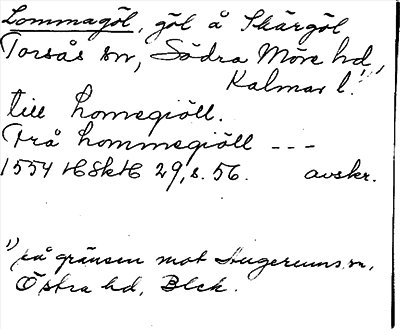 Lommagöl, göl å Skärgöl,
Torsås sn, Södra Möre hd,
Kalmar l.¹⁾
till homegiöll.
Frå hommegiöll ---
1554 HSkH 29, s. 56. avskr.
¹⁾ på gränsen mot Fugereums sn,
Östra hd, Blek.